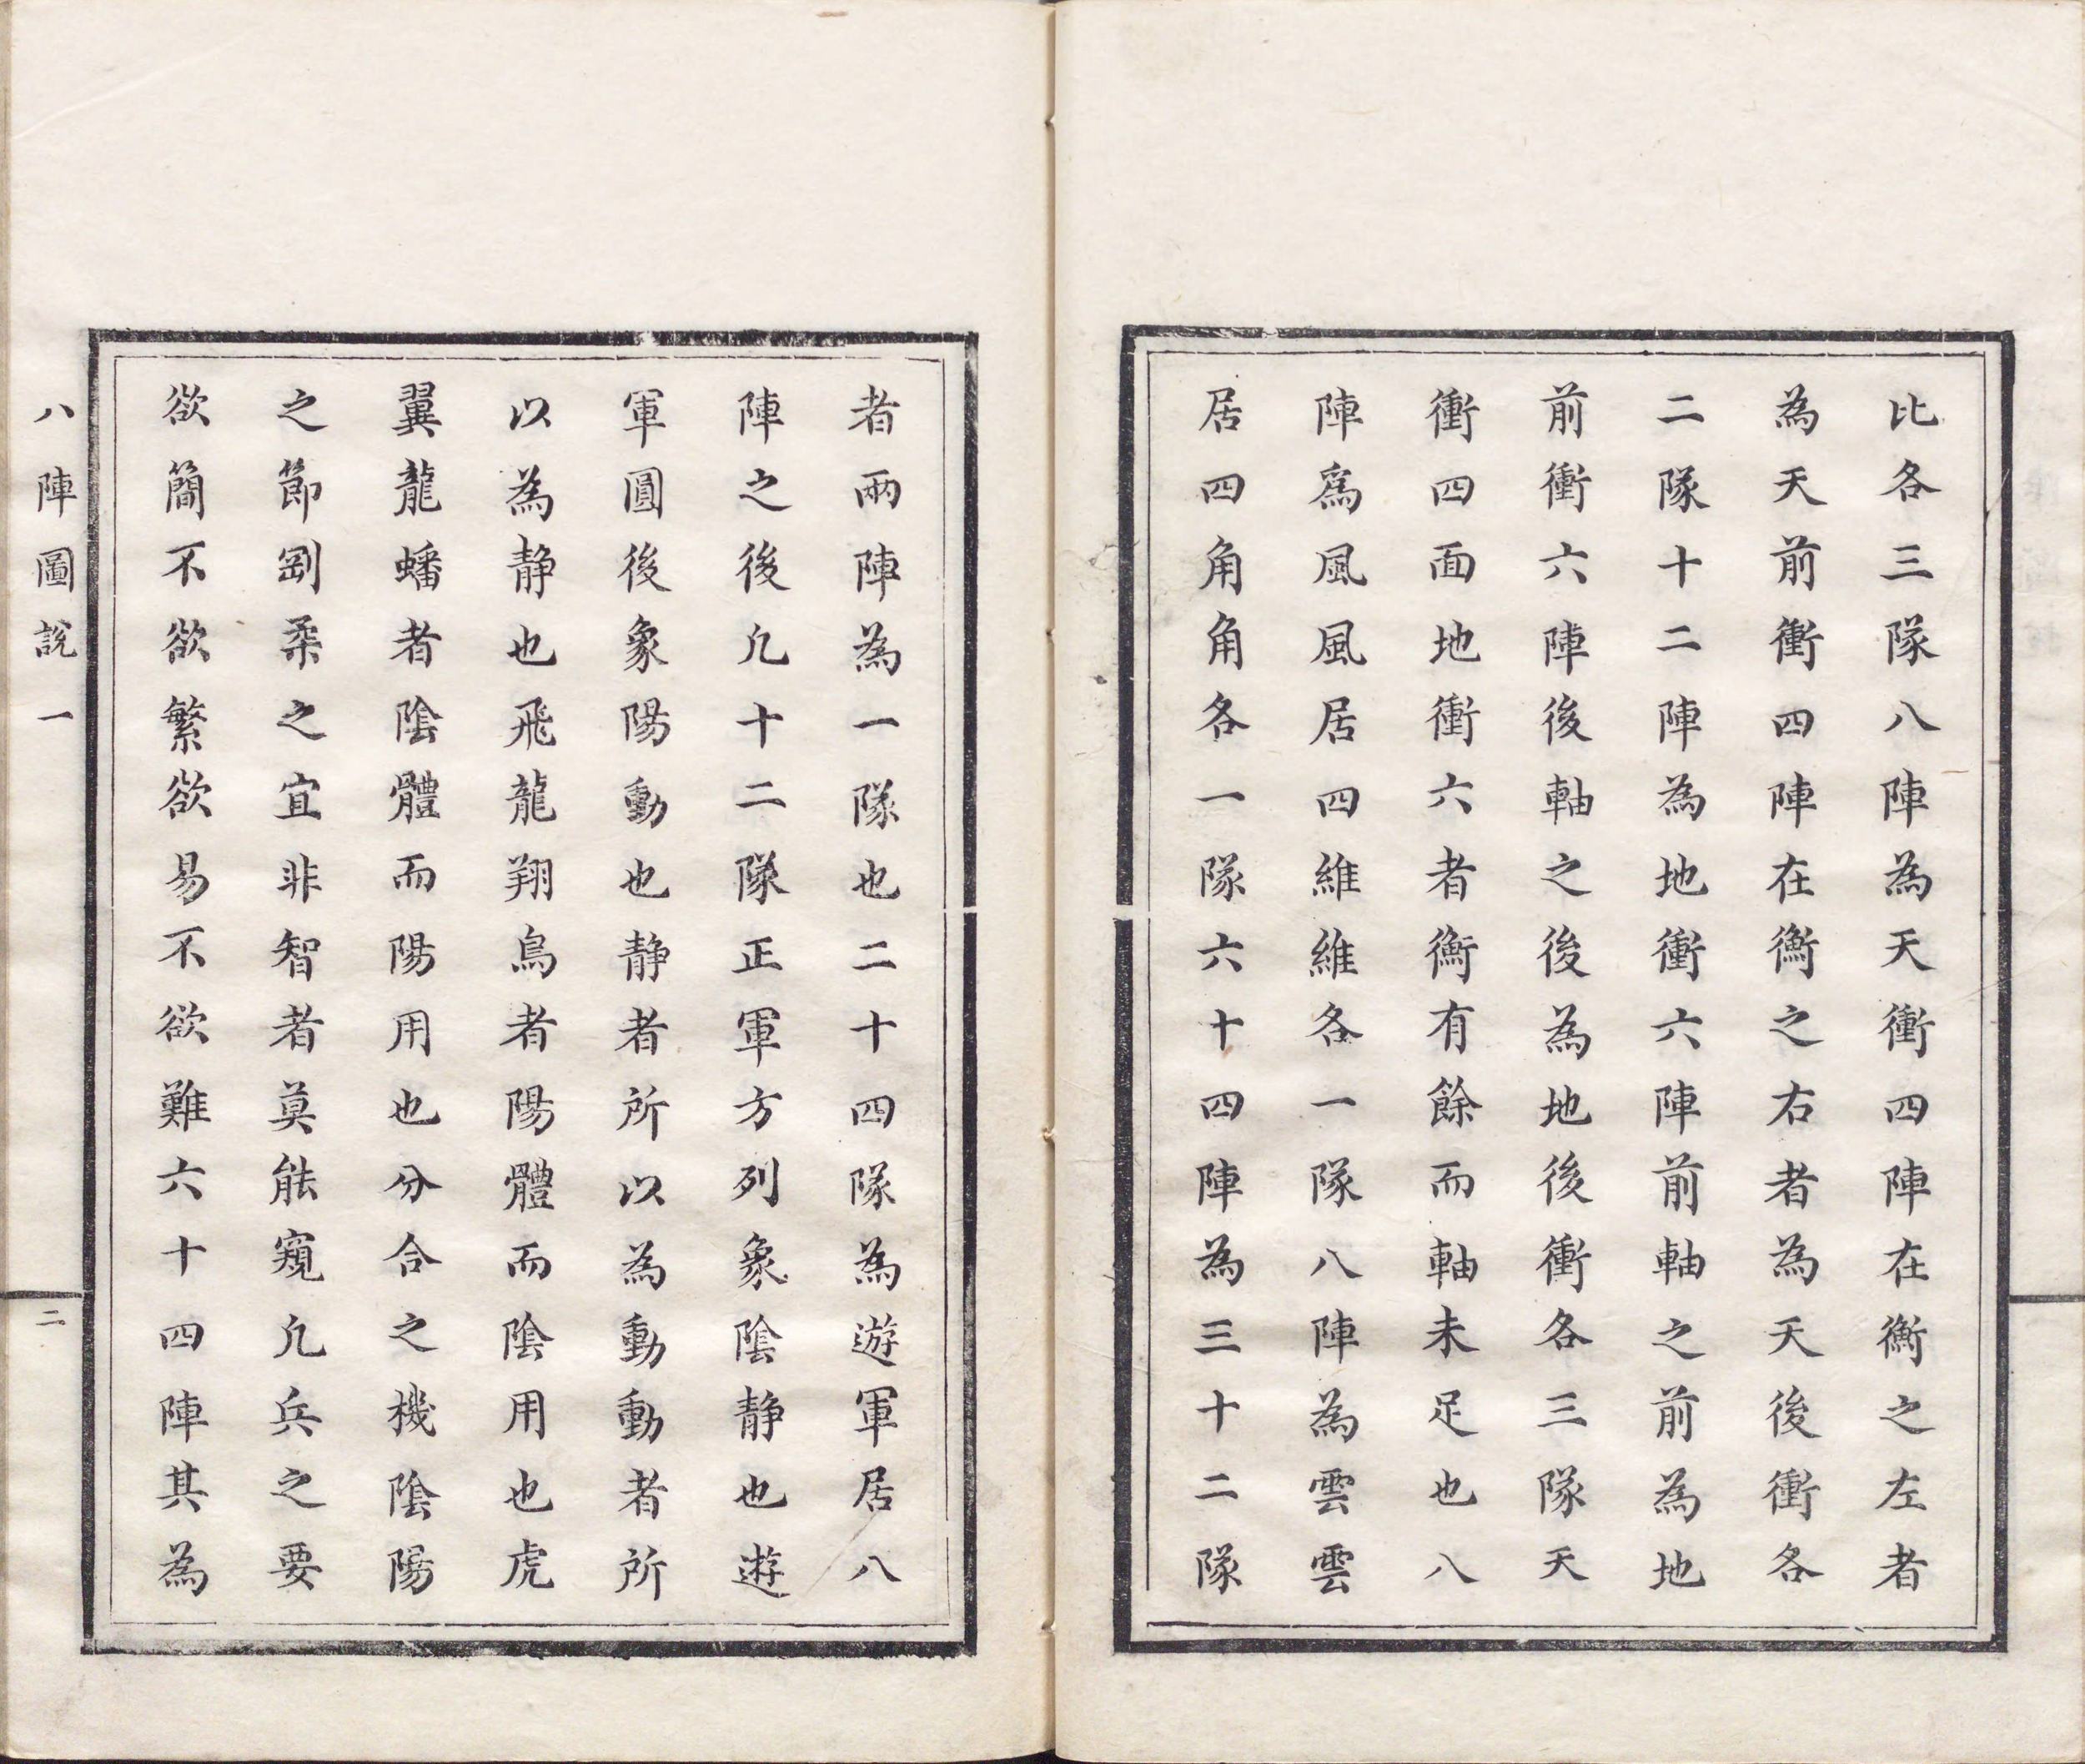 比各三隊八陣為天衝四陣在衡之左者
為天前衝四陣在衡之右者為天後衝各
二隊十二陣為地衝六陣前軸之前為地
前衝六陣後軸之後為地後衝各三隊天
衝四面地衝六者衡有餘而軸未足也八
陣爲風風居四維維各一隊八陣為雲雲
居四角角各一隊六十四陣為三十二隊
者兩陣為一隊也二十四隊為遊軍居八
陣之後凢十二隊正軍方列象陰静也遊
軍圓後象陽動也静者所以為動動者所
以為静也飛龍翔鳥者陽體而陰用也虎
翼龍蟠者陰體而陽用也分合之機陰陽
之節剛柔之宜非智者莫能窺凢兵之要
欲簡不欲繁欲易不欲難六十四陣其為
八陣圖說一
二